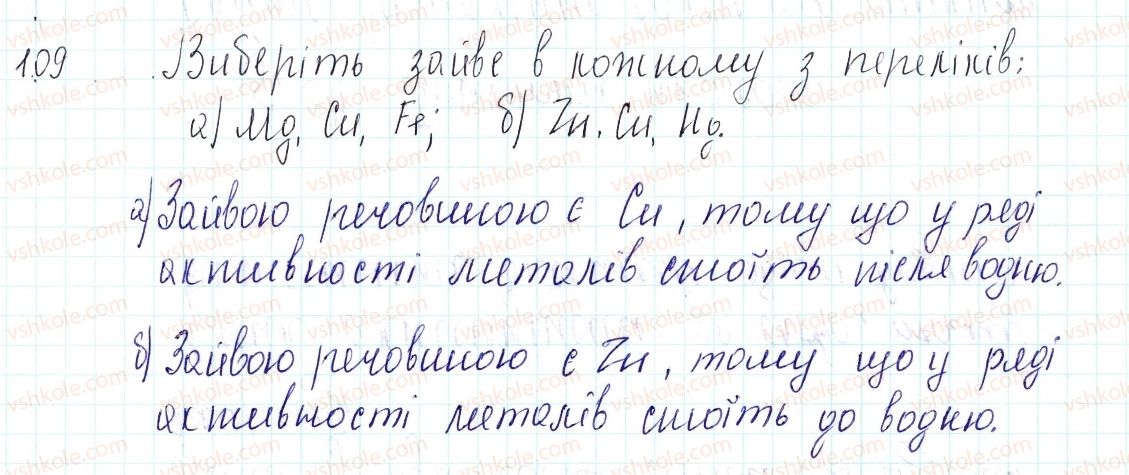 109 Виберіть зайве в кожному з переліків:
а) Mg, Cu, Fe; б) Zn, Cu, Hg.
а) Зайвою речовиною є Cu, тому що у ряді
активності металів стоїть після водню.
б) Зайвою речовиною є Zn, тому що у ряді
активності металів стоїть до водню.